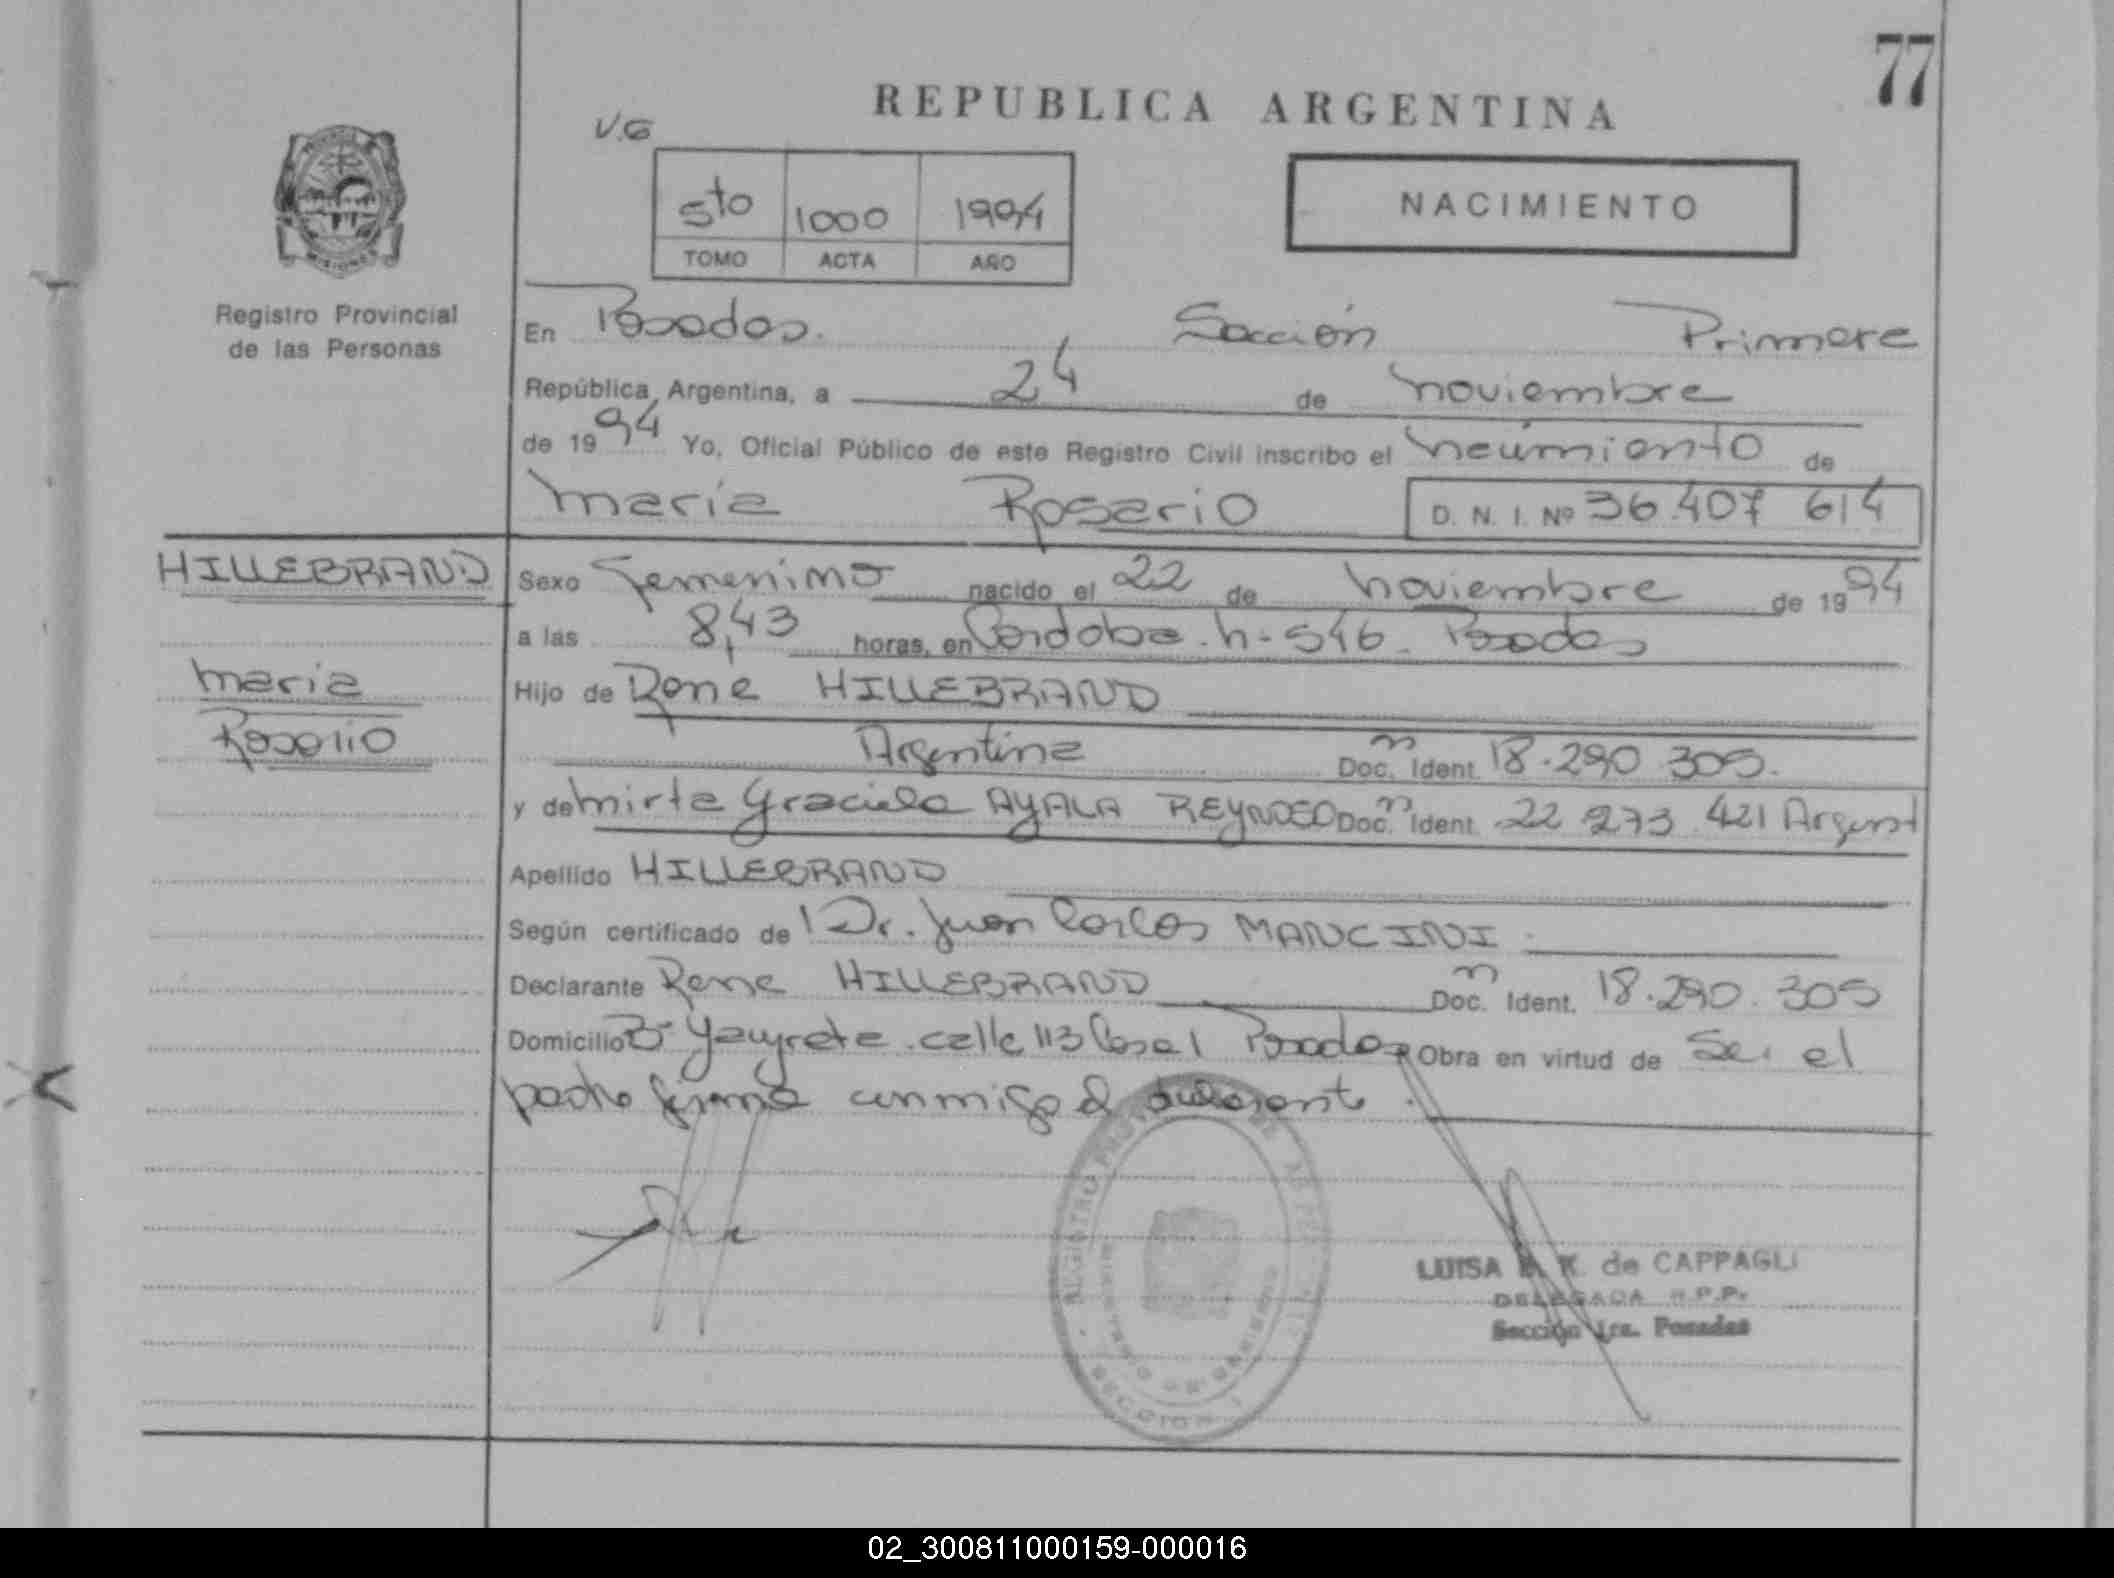 77
REPUBLICA ARGENTINA
V.G
5to 1000 1994
TOMO ACTA AÑO
NACIMIENTO
MISIONES
Registro Provincial
de las Personas
En Posadas. Sección Primera
República Argentina, a 24 de noviembre
de 1994 Yo, Oficial Público de este Registro Civil inscribo el nacimiento de
Maria Rosario D. N. I. Nº 36.407 614
HILLEBRAND
Maria
Rosario
Sexo Femenino nacido el 22 de noviembre de 1994
a las 8,43 horas, en Cordoba. n- 546. Posadas
Hijo de Rene HILLEBRAND
Argentina Doc. Ident. 18.290 305.
y de Mirta Graciela AYALA REYNOSO Doc. Ident. 22 273 421 Argent
Apellido HILLEBRAND
Según certificado de Dr. Juan Carlos MANCINI.
Declarante Rene HILLEBRAND Doc. Ident. 18.290.305
Domicilio Bº Yacyreta. calle 113 Casa 1 Posadas Obra en virtud de Ser el
padre firma conmigo el declarante.
REGISTRO PROVINCIAL DE LAS PERSONAS
SECCION 1
LUISA K. de CAPPAGLI
DELEGADA R.P.P.
Sección 1ra. Posadas
02_300811000159-000016